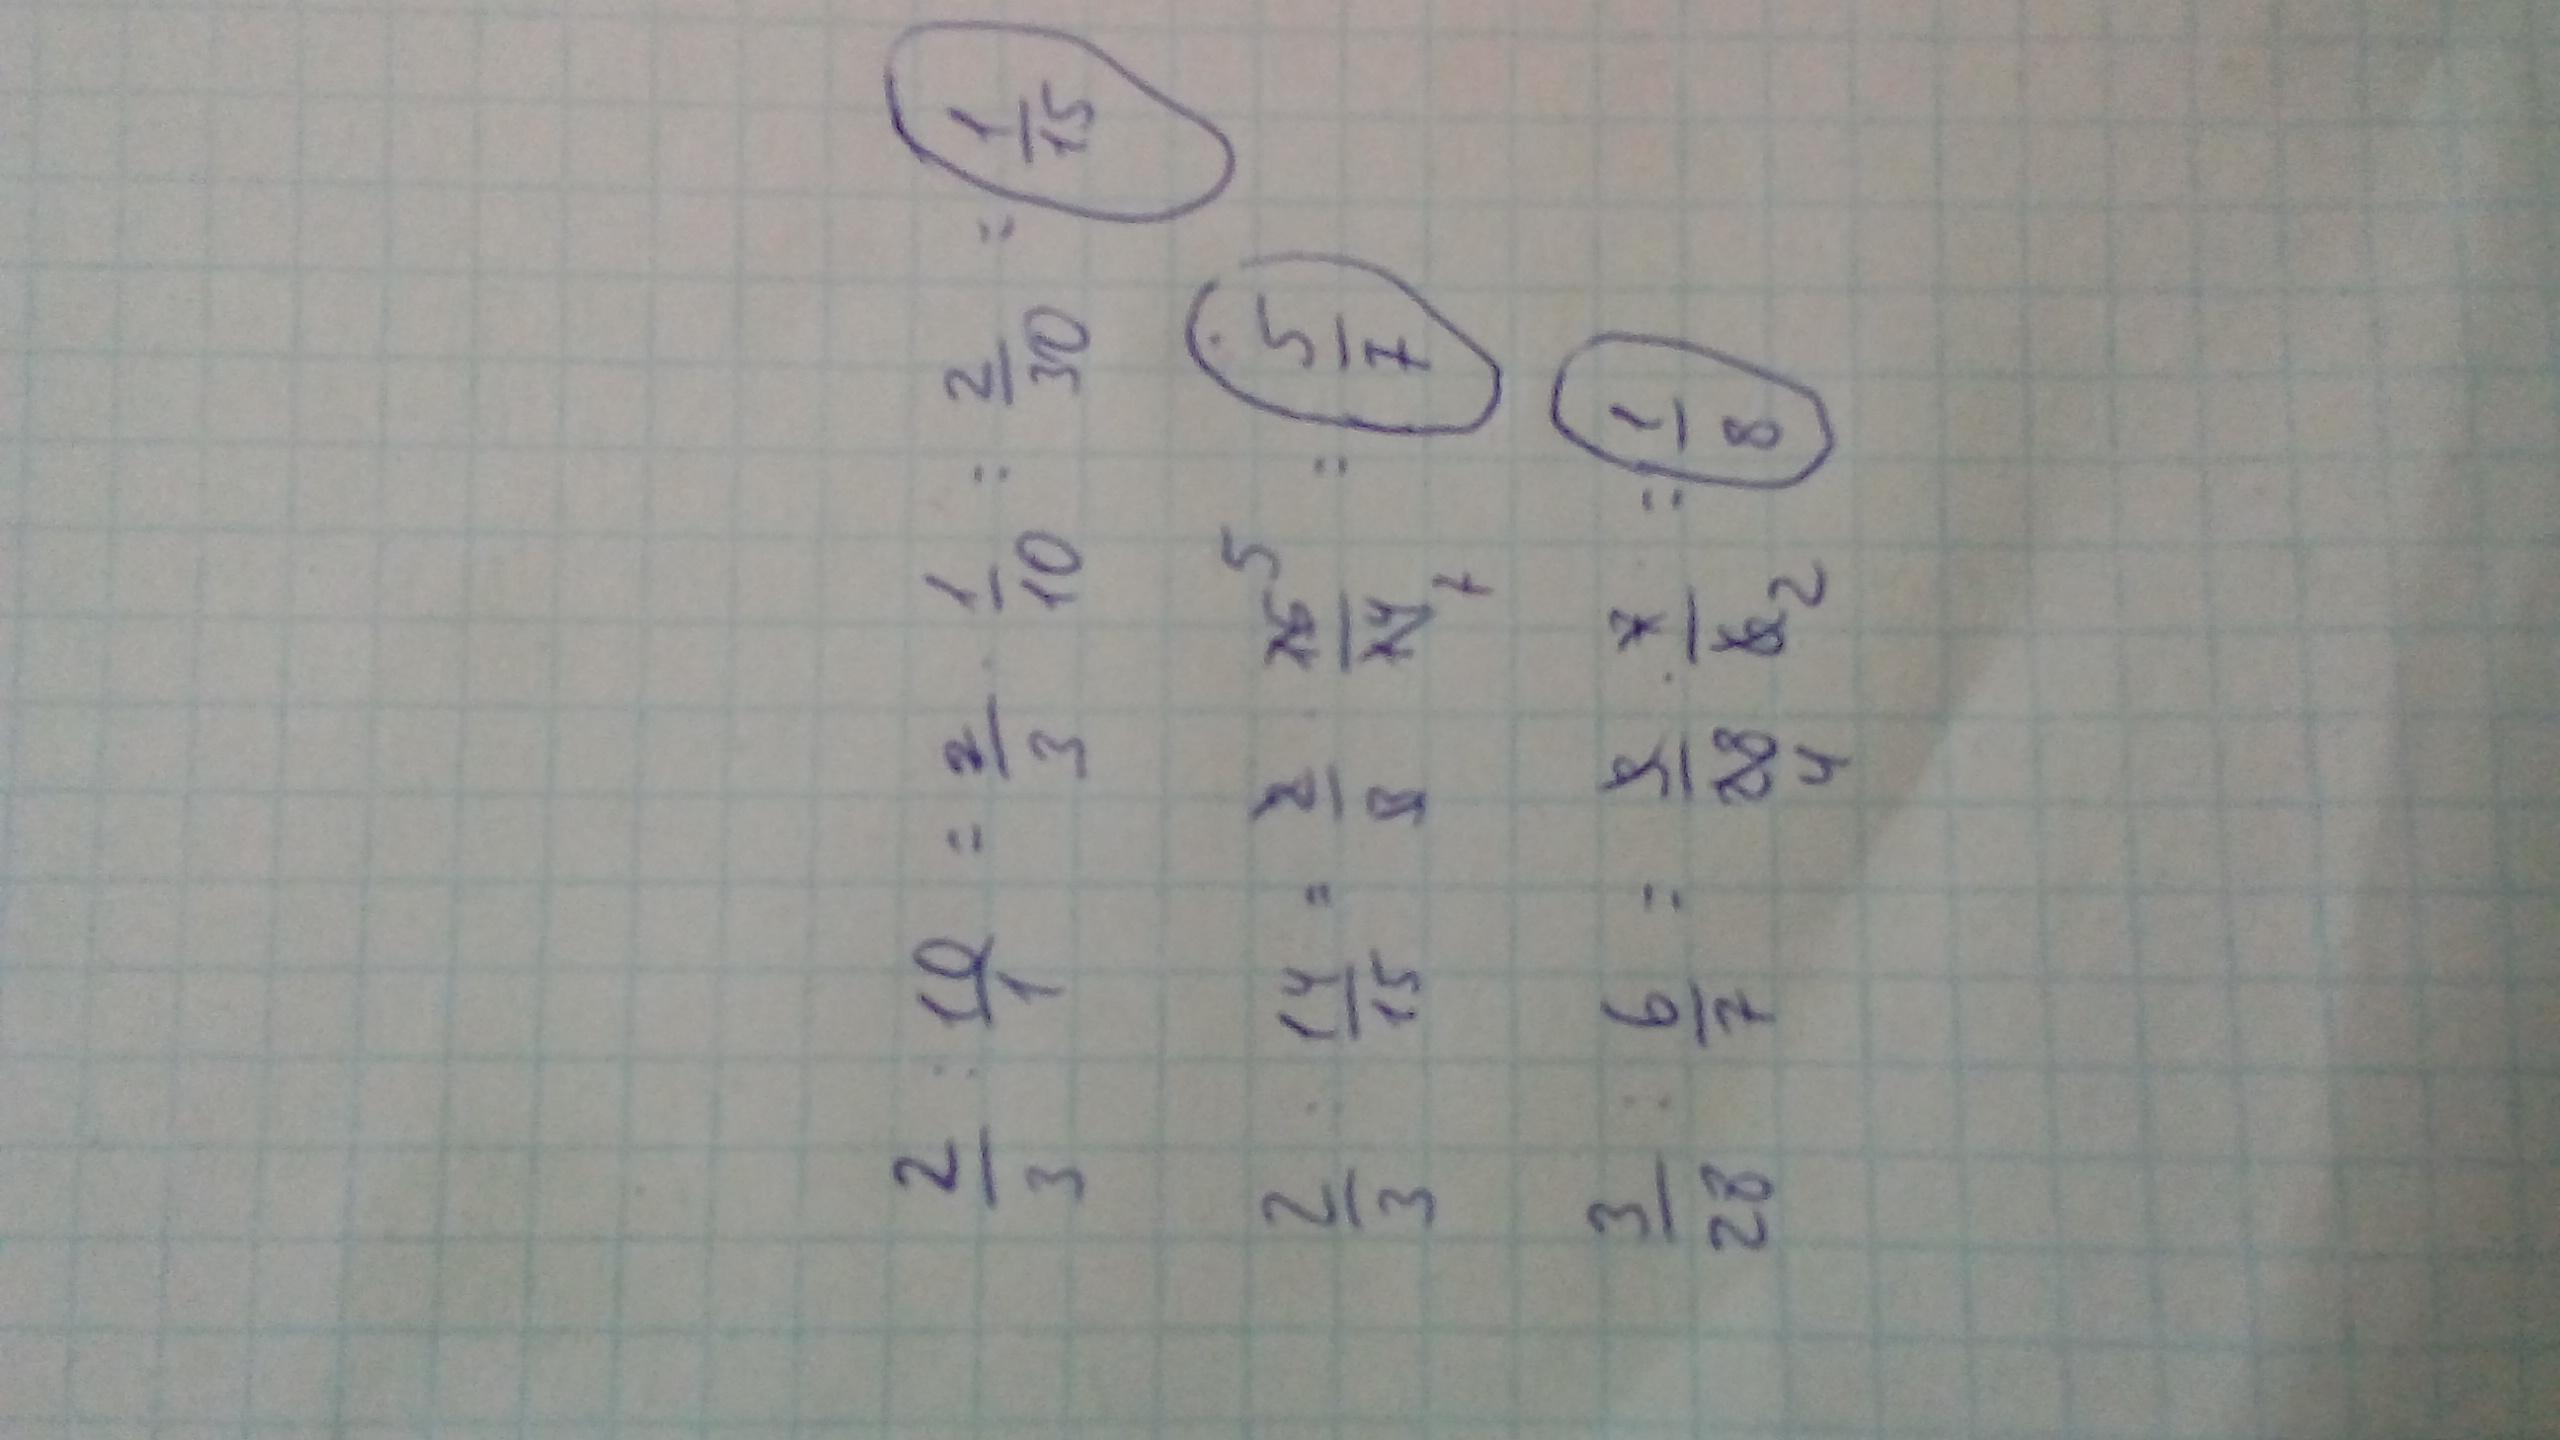 2/3 : 10/1 = 2/3 · 1/10 = 2/30 = 1/15
2/3 : 14/15 = 2/3 · 15 5/14 7 = 5/7
3/28 : 6/7 = 3/28 4 · 7/6 2 = 1/8